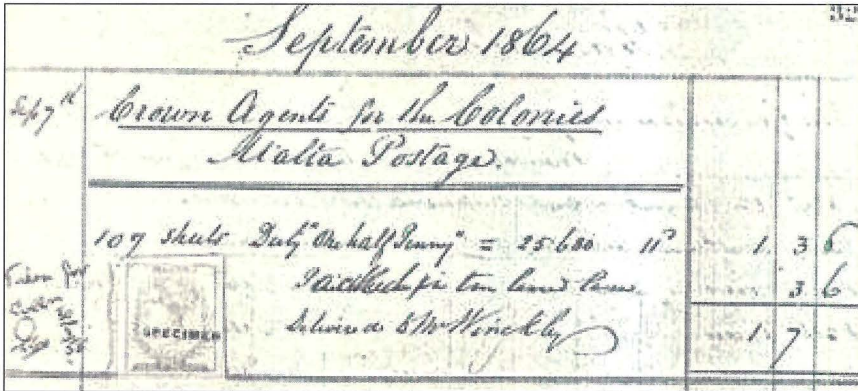 32
September 1864
Sep 7th
Crown Agents for the Colonies
Malta Postage.
107 sheets Duty "One half Penny" = 25600 11d 1 3 6
Packed in tin lined case 3 6
SPECIMEN
Delivered to Mr Winckley 1 7